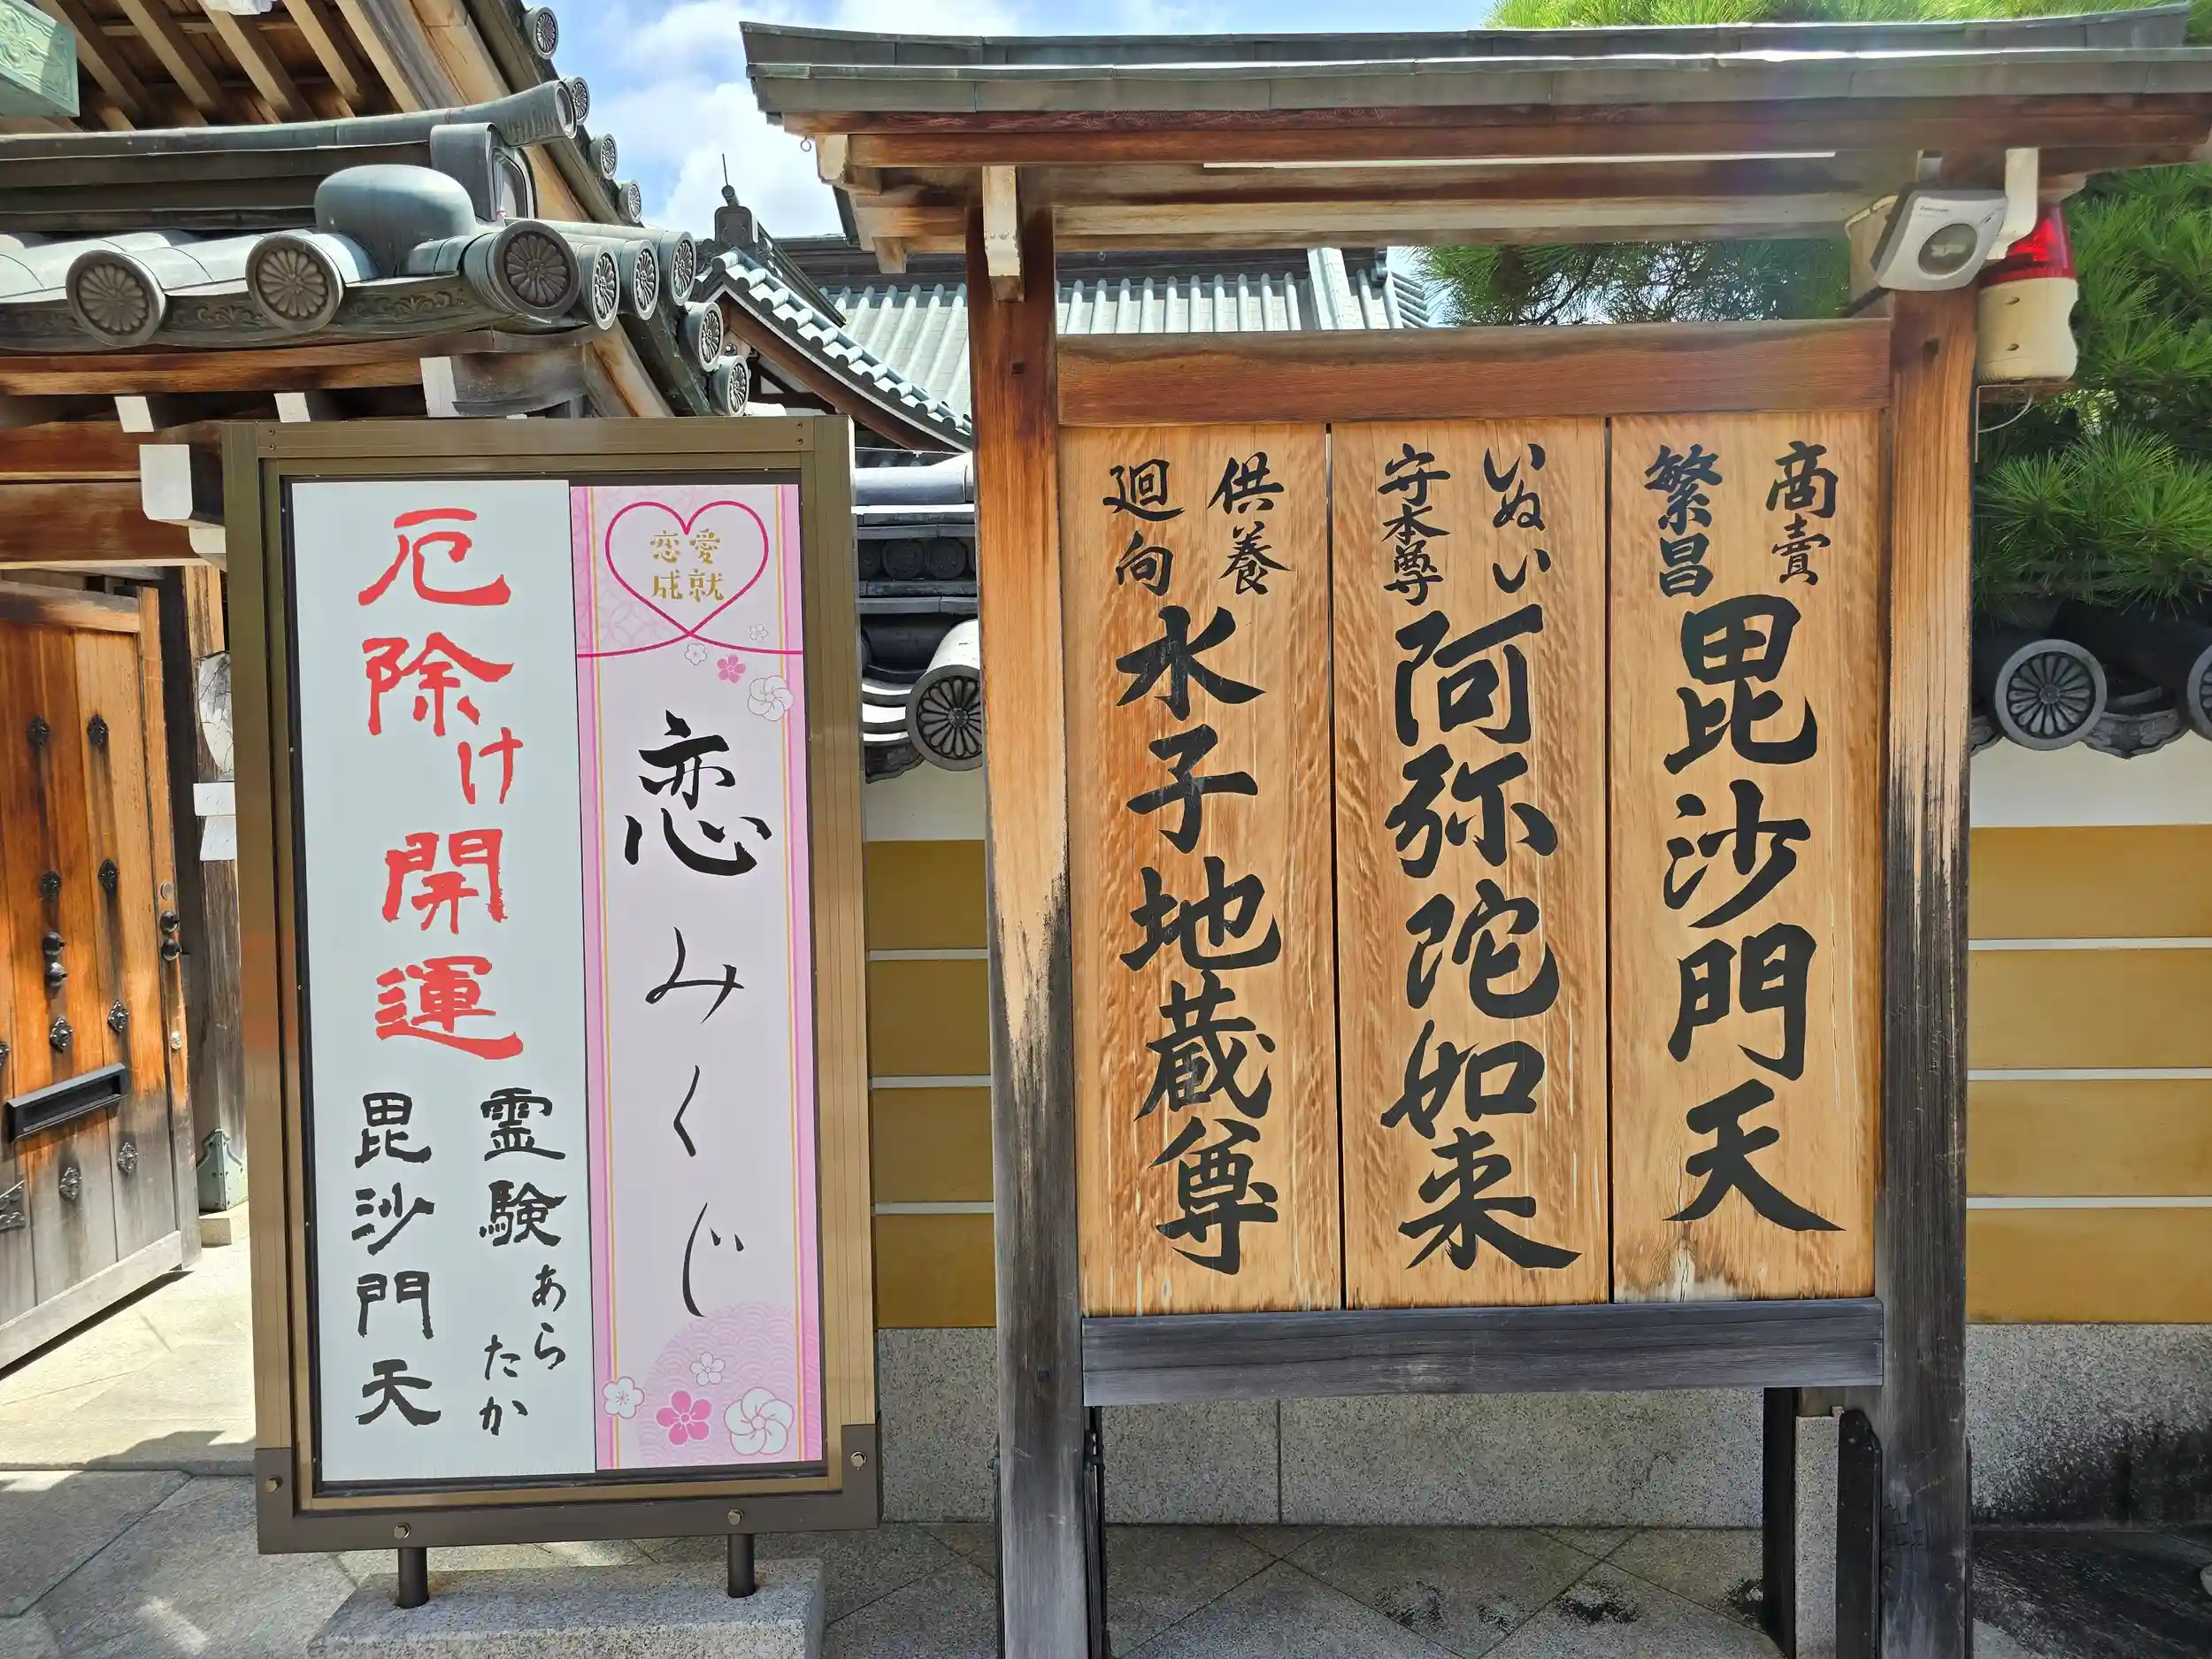 商賣
繁昌
毘沙門天
いぬい
守本尊
阿弥陀如来
供養
廻向
水子地蔵尊
恋愛
成就
恋みくじ
厄除け開運
霊験あらたか
毘沙門天